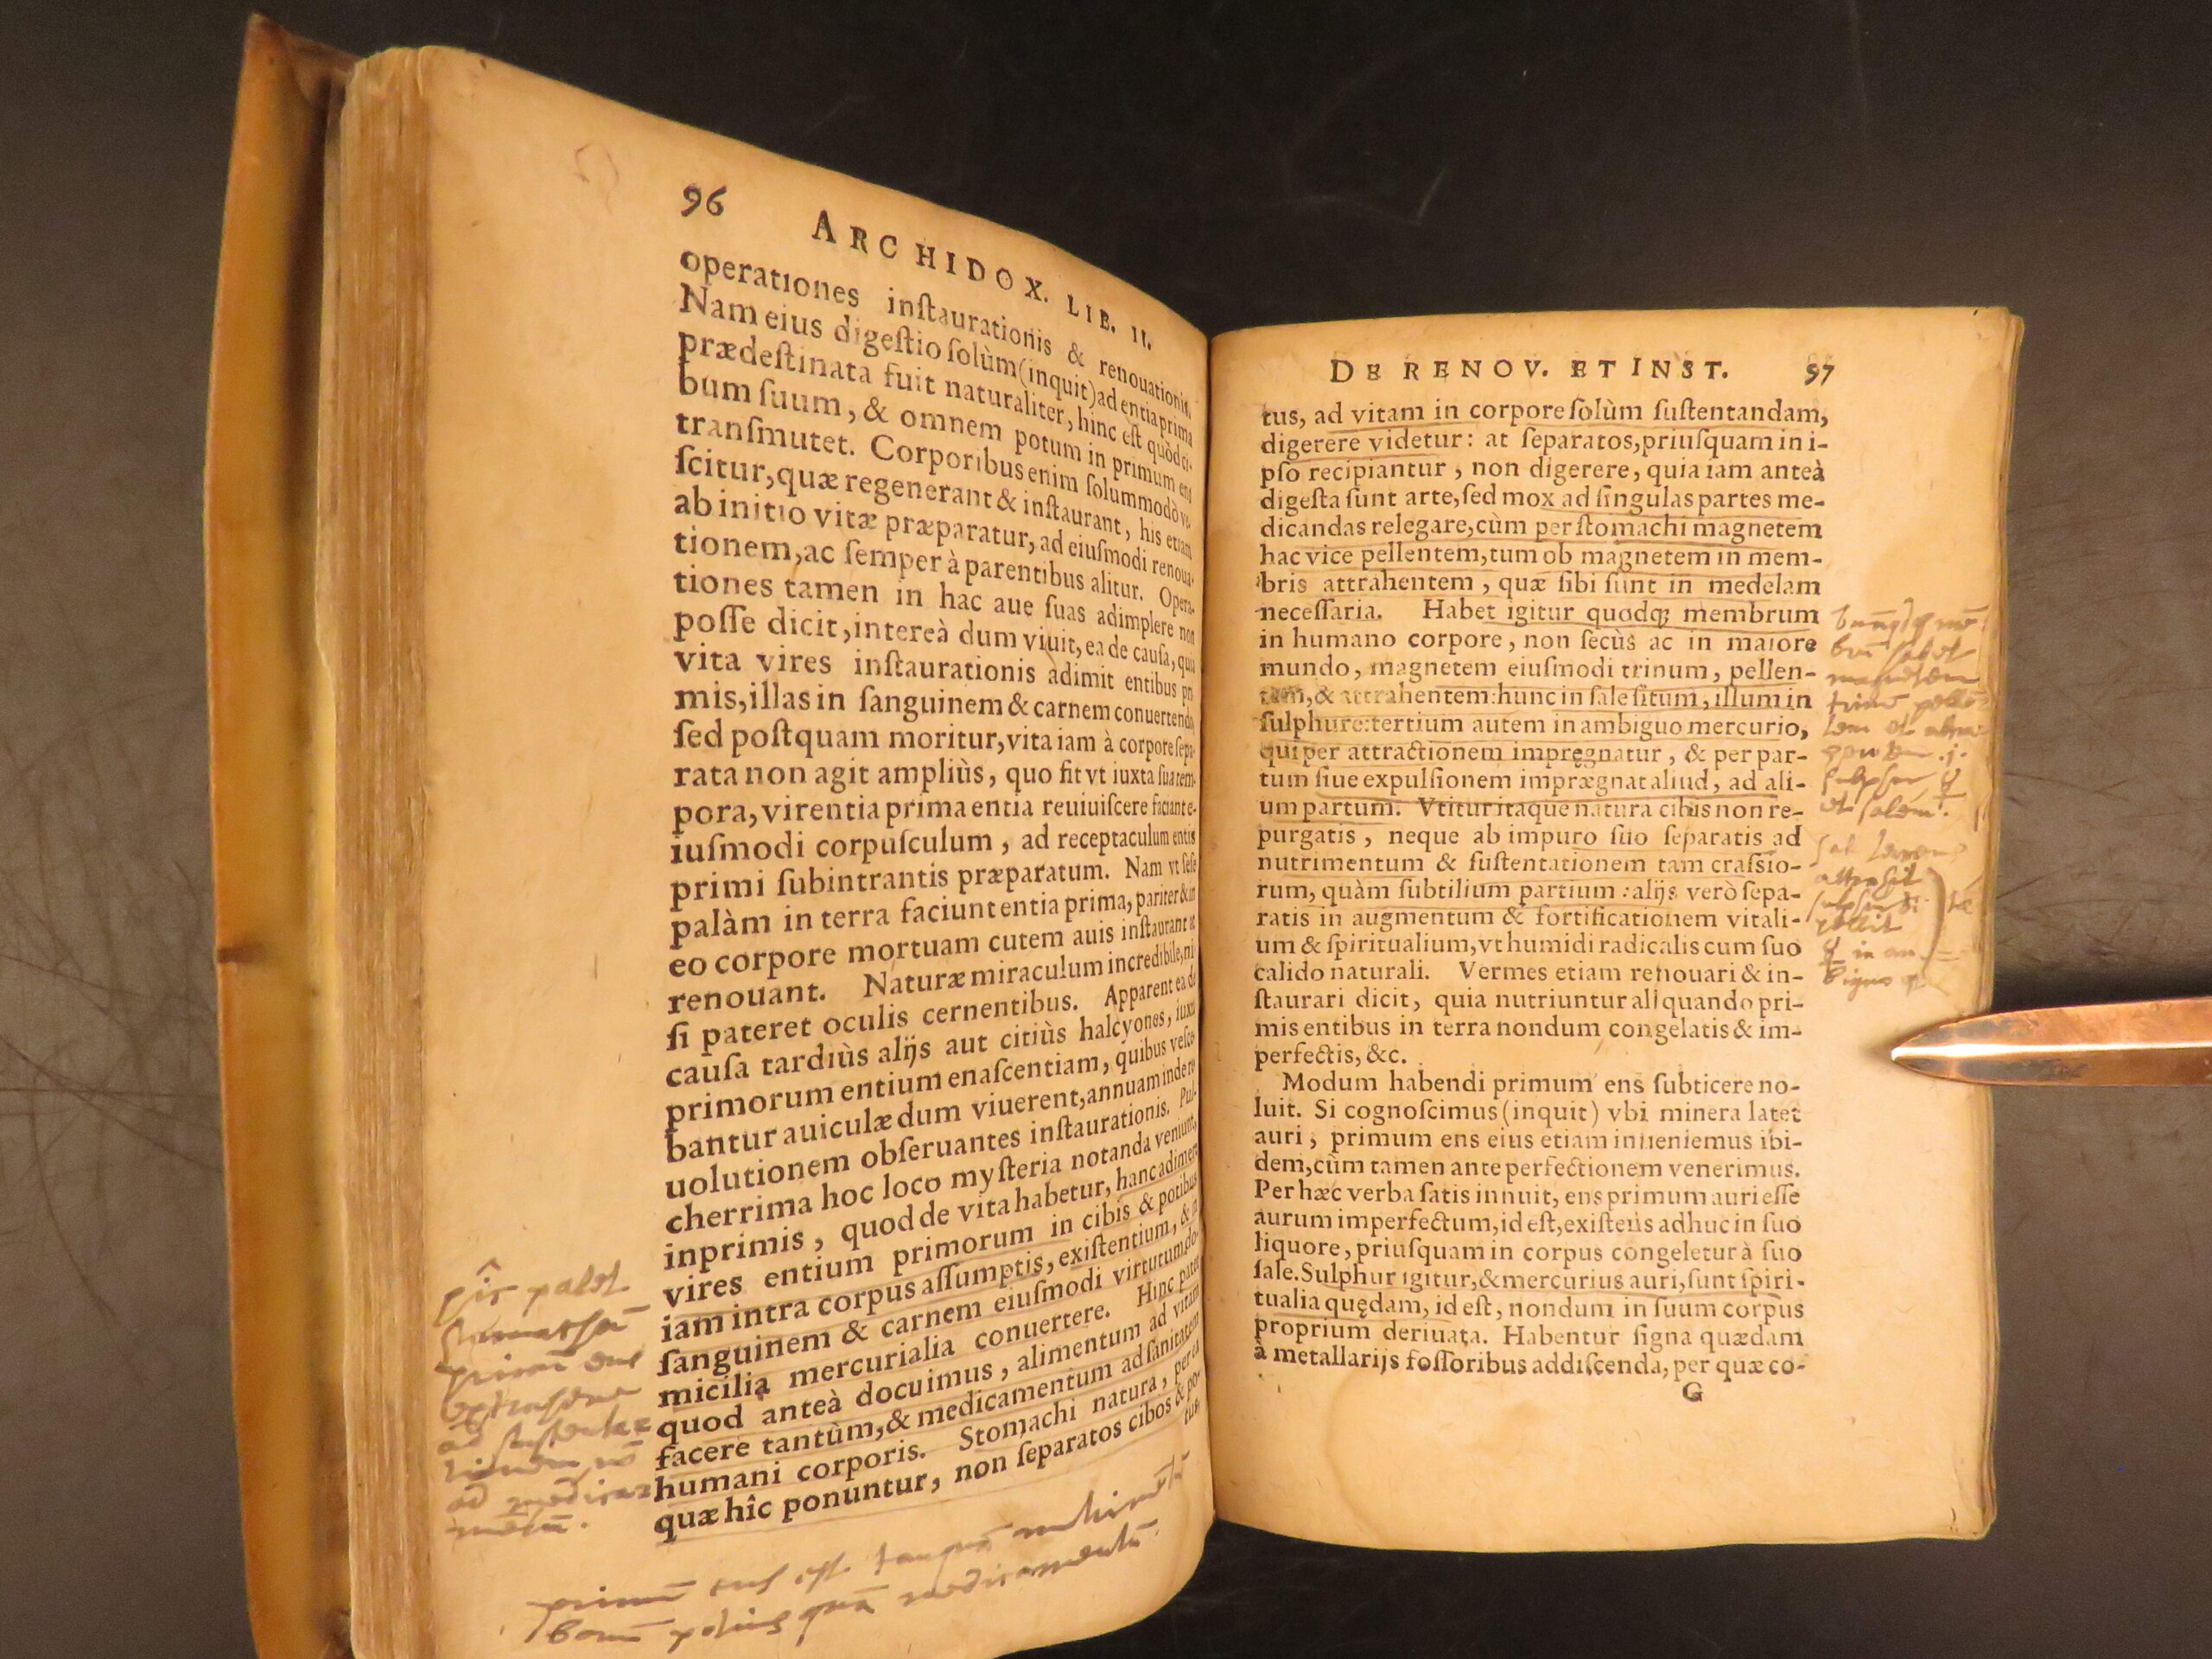 96 ARCHIDOX. LIB. II.
operationes inſtaurationis & renouationis.
Nam eius digeſtio ſolùm (inquit) ad entia prima
prædeſtinata fuit naturaliter, hinc eſt quòd ci-
bum ſuum, & omnem potum in primum ens
tranſmutet. Corporibus enim ſolummodò ve-
ſcitur, quæ regenerant & inſtaurant, his etiam
ab initio vitæ præparatur, ad eiuſmodi renoua-
tionem, ac ſemper à parentibus alitur. Opera-
tiones tamen in hac aue ſuas adimplere non
poſſe dicit, intereà dum viuit, ea de cauſa, quia
vita vires inſtaurationis adimit entibus pri
mis, illas in ſanguinem & carnem conuertendo,
ſed poſtquam moritur, vita iam à corpore ſepa-
rata non agit ampliùs, quo fit vt iuxta ſua tem-
pora, virentia prima entia reuiuiſcere faciant e-
iuſmodi corpuſculum, ad receptaculum entis
primi ſubintrantis præparatum. Nam vt ſeſe
palàm in terra faciunt entia prima, pariter & in
eo corpore mortuam cutem auis inſtaurant ac
renouant. Naturæ miraculum incredibile, ni-
ſi pateret oculis cernentibus. Apparent ea de
cauſa tardiùs alijs aut citiùs halcyones, iuxta
primorum entium enaſcentiam, quibus veſce-
bantur auiculæ dum viuerent, annuam inde re-
uolutionem obſeruantes inſtaurationis. Pul-
cherrima hoc loco myſteria notanda veniunt,
inprimis, quod de vita habetur, hanc adimere
vires entium primorum in cibis & potibus
iam intra corpus aſſumptis, exiſtentium, & in
ſanguinem & carnem eiuſmodi virtutum do-
micilia mercurialia conuertere. Hinc patet
quod anteà docuimus, alimentum ad vitam
facere tantùm, & medicamentum ad ſanitatem
humani corporis. Stomachi natura, per ea
quæ hîc ponuntur, non ſeparatos cibos & po-
tus,
primū ens est tanquā
potius quā medicamentū.
DE RENOV. ET INST. 97
tus, ad vitam in corpore ſolùm ſuſtentandam,
digerere videtur: at ſeparatos, priuſquam in i-
pſo recipiantur, non digerere, quia iam anteà
digeſta ſunt arte, ſed mox ad ſingulas partes me-
dicandas relegare, cùm per ſtomachi magnetem
hac vice pellentem, tum ob magnetem in mem-
bris attrahentem, quæ ſibi ſunt in medelam
neceſſaria. Habet igitur quodq; membrum
in humano corpore, non ſecùs ac in maiore
mundo, magnetem eiuſmodi trinum, pellen-
tem, & attrahentem: hunc in ſale ſitum, illum in
ſulphure: tertium autem in ambiguo mercurio,
qui per attractionem impręgnatur, & per par-
tum ſiue expulſionem imprægnat aliud, ad ali-
um partum. Vtitur itaque natura cibis non re-
purgatis, neque ab impuro ſuo ſeparatis ad
nutrimentum & ſuſtentationem tam craſsio-
rum, quàm ſubtilium partium: alijs verò ſepa-
ratis in augmentum & fortificationem vitali-
um & ſpiritualium, vt humidi radicalis cum ſuo
calido naturali. Vermes etiam renouari & in-
ſtaurari dicit, quia nutriuntur aliquando pri-
mis entibus in terra nondum congelatis & im-
perfectis, &c.
Modum habendi primum ens ſubticere no-
luit. Si cognoſcimus (inquit) vbi minera latet
auri, primum ens eius etiam inueniemus ibi-
dem, cùm tamen ante perfectionem venerimus.
Per hæc verba ſatis innuit, ens primum auri eſſe
aurum imperfectum, id eſt, exiſtens adhuc in ſuo
liquore, priuſquam in corpus congeletur à ſuo
ſale. Sulphur igitur, & mercurius auri, ſunt ſpiri-
tualia quędam, id eſt, nondum in ſuum corpus
proprium deriuata. Habentur ſigna quædam
à metallarijs foſſoribus addiſcenda, per quæ co-
G